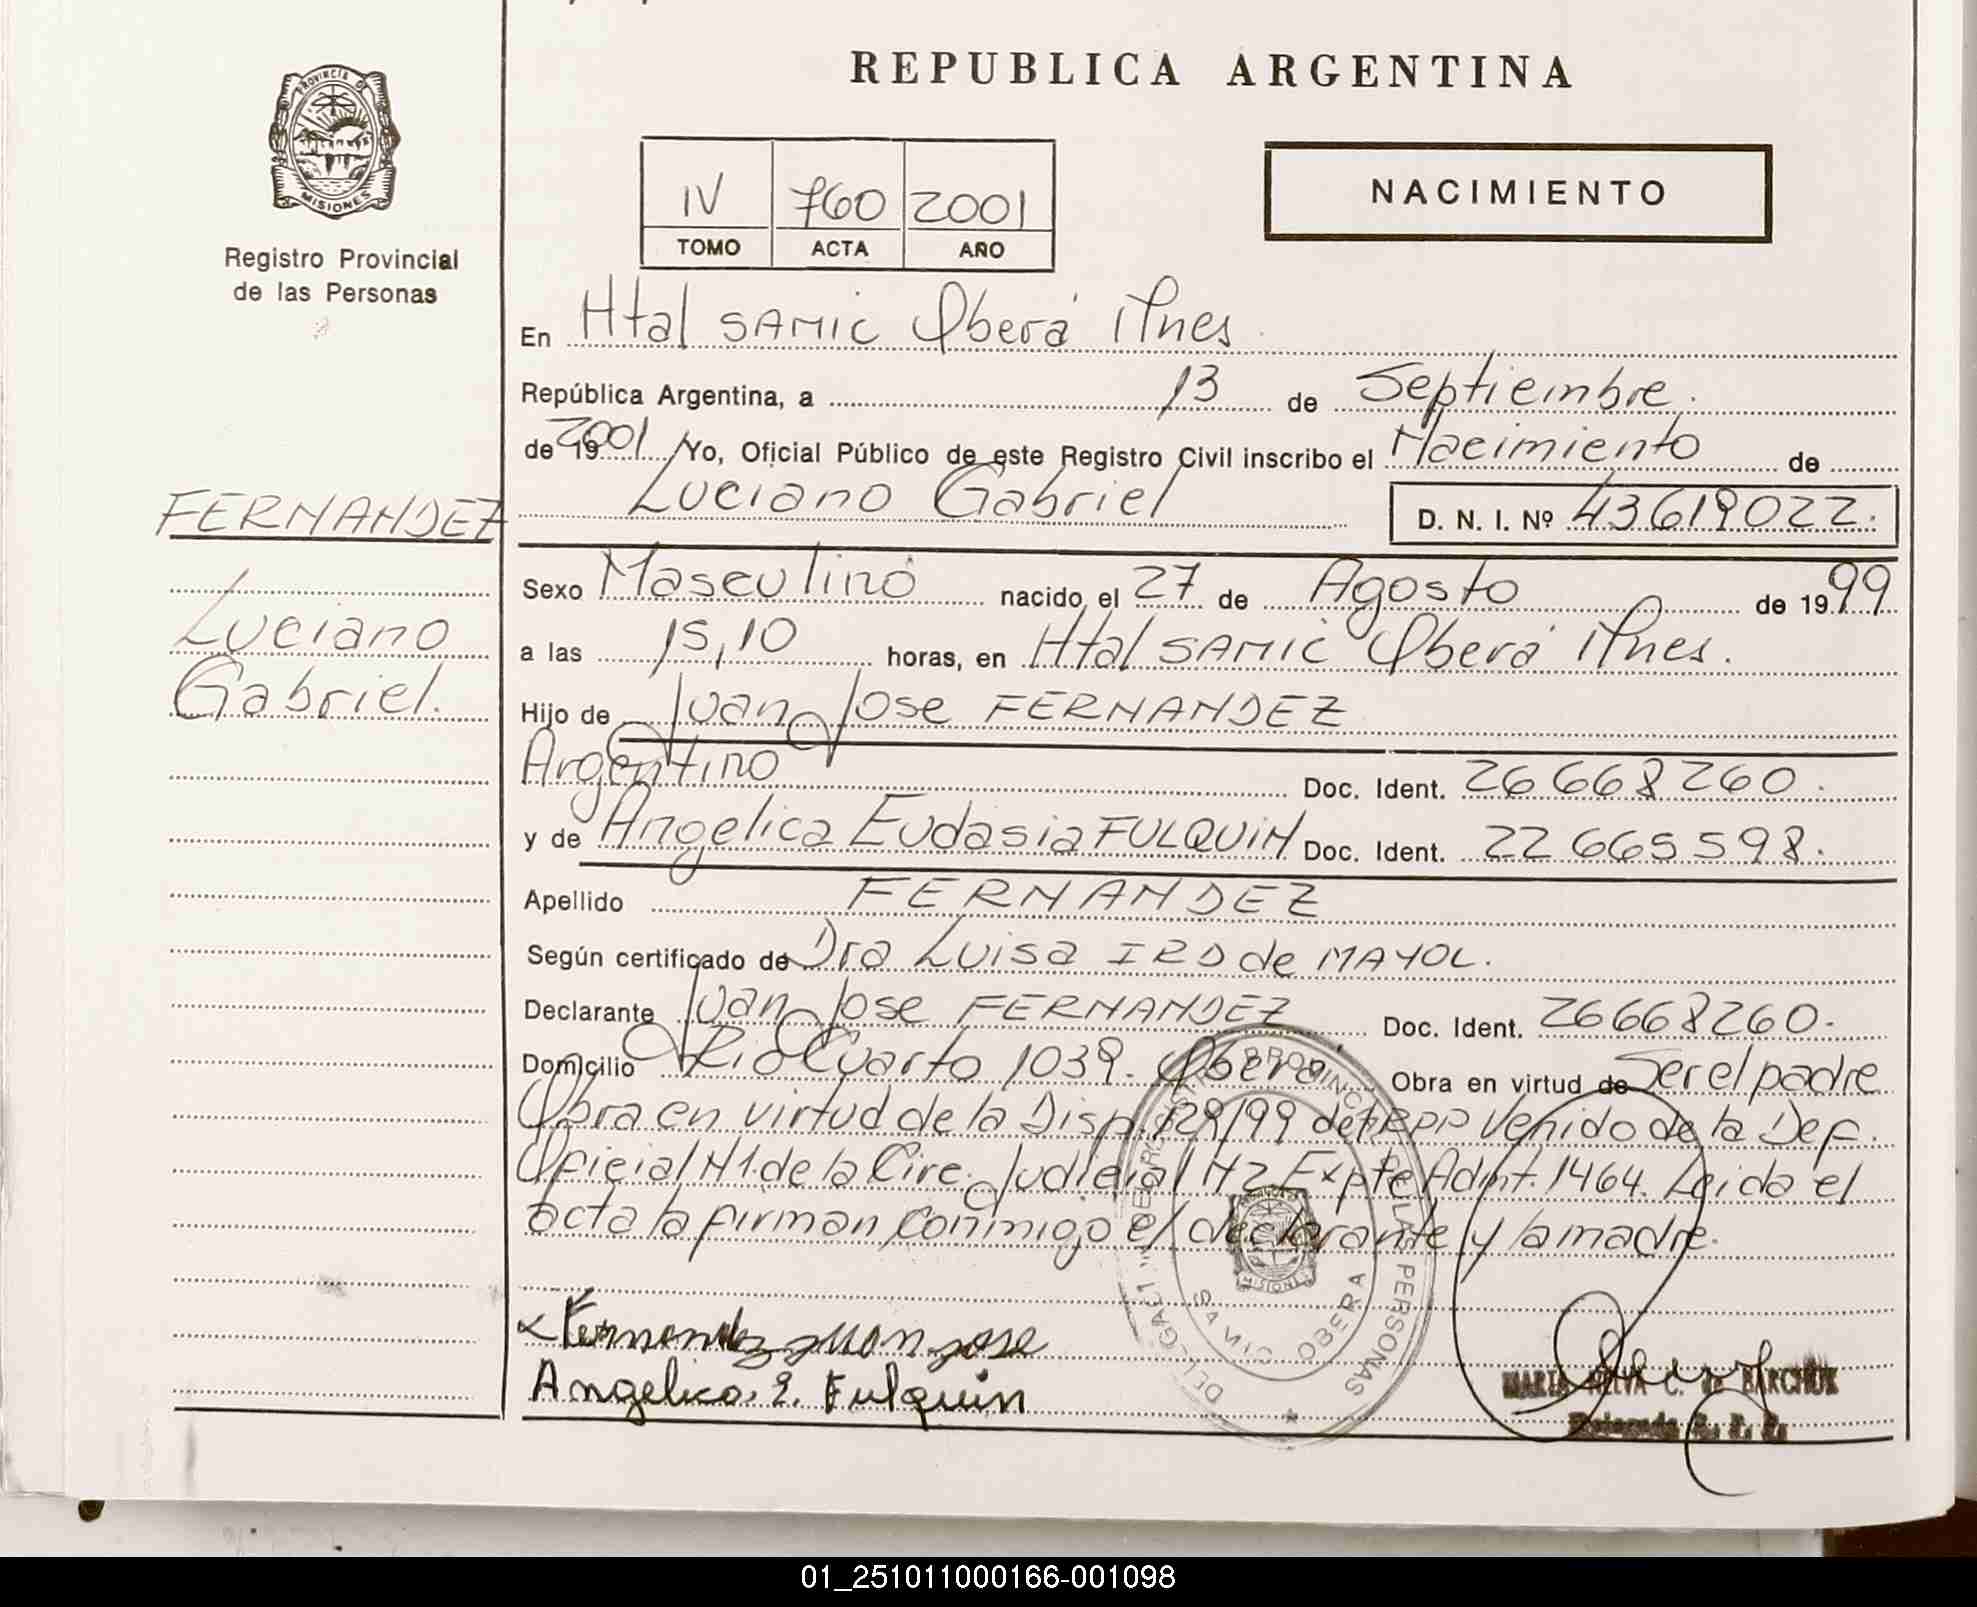 REPUBLICA ARGENTINA
PROVINCIA DE MISIONES
Registro Provincial
de las Personas
IV 760 2001
TOMO ACTA AÑO
NACIMIENTO
En Htal SAMIC Oberá Mnes
República Argentina, a 13 de Septiembre.
de 19 2001 Yo, Oficial Público de este Registro Civil inscribo el Nacimiento de
Luciano Gabriel D. N. I. Nº 43619022.
FERNANDEZ
Luciano
Gabriel.
Sexo Masculino nacido el 27 de Agosto de 1999
a las 15,10 horas, en Htal SAMIC Oberá Mnes.
Hijo de Juan Jose FERNANDEZ
Argentino Doc. Ident. 26668260.
y de Angelica Eudasia FULQUIN Doc. Ident. 22665598.
Apellido FERNANDEZ
Según certificado de Dra Luisa IRD de MAYOL.
Declarante Juan Jose FERNANDEZ Doc. Ident. 26668260.
Domicilio Rio Cuarto 1039. Oberá Obra en virtud de Ser el padre
Obra en virtud de la Disp. 129/99 del RPP Venido de la Def.
Oficial N1. de la Circ. Judicial N2 Expte Admt. 1464. Leida el
acta la firman conmigo el declarante y la madre.
Fernandez Juan Jose
Angelica E. Fulquin
REGISTRO PROVINCIAL DE LAS PERSONAS
MISIONES
SAMIC OBERA
MARIA C. de BARCHUK
Delegada R. P. P.
01_251011000166-001098